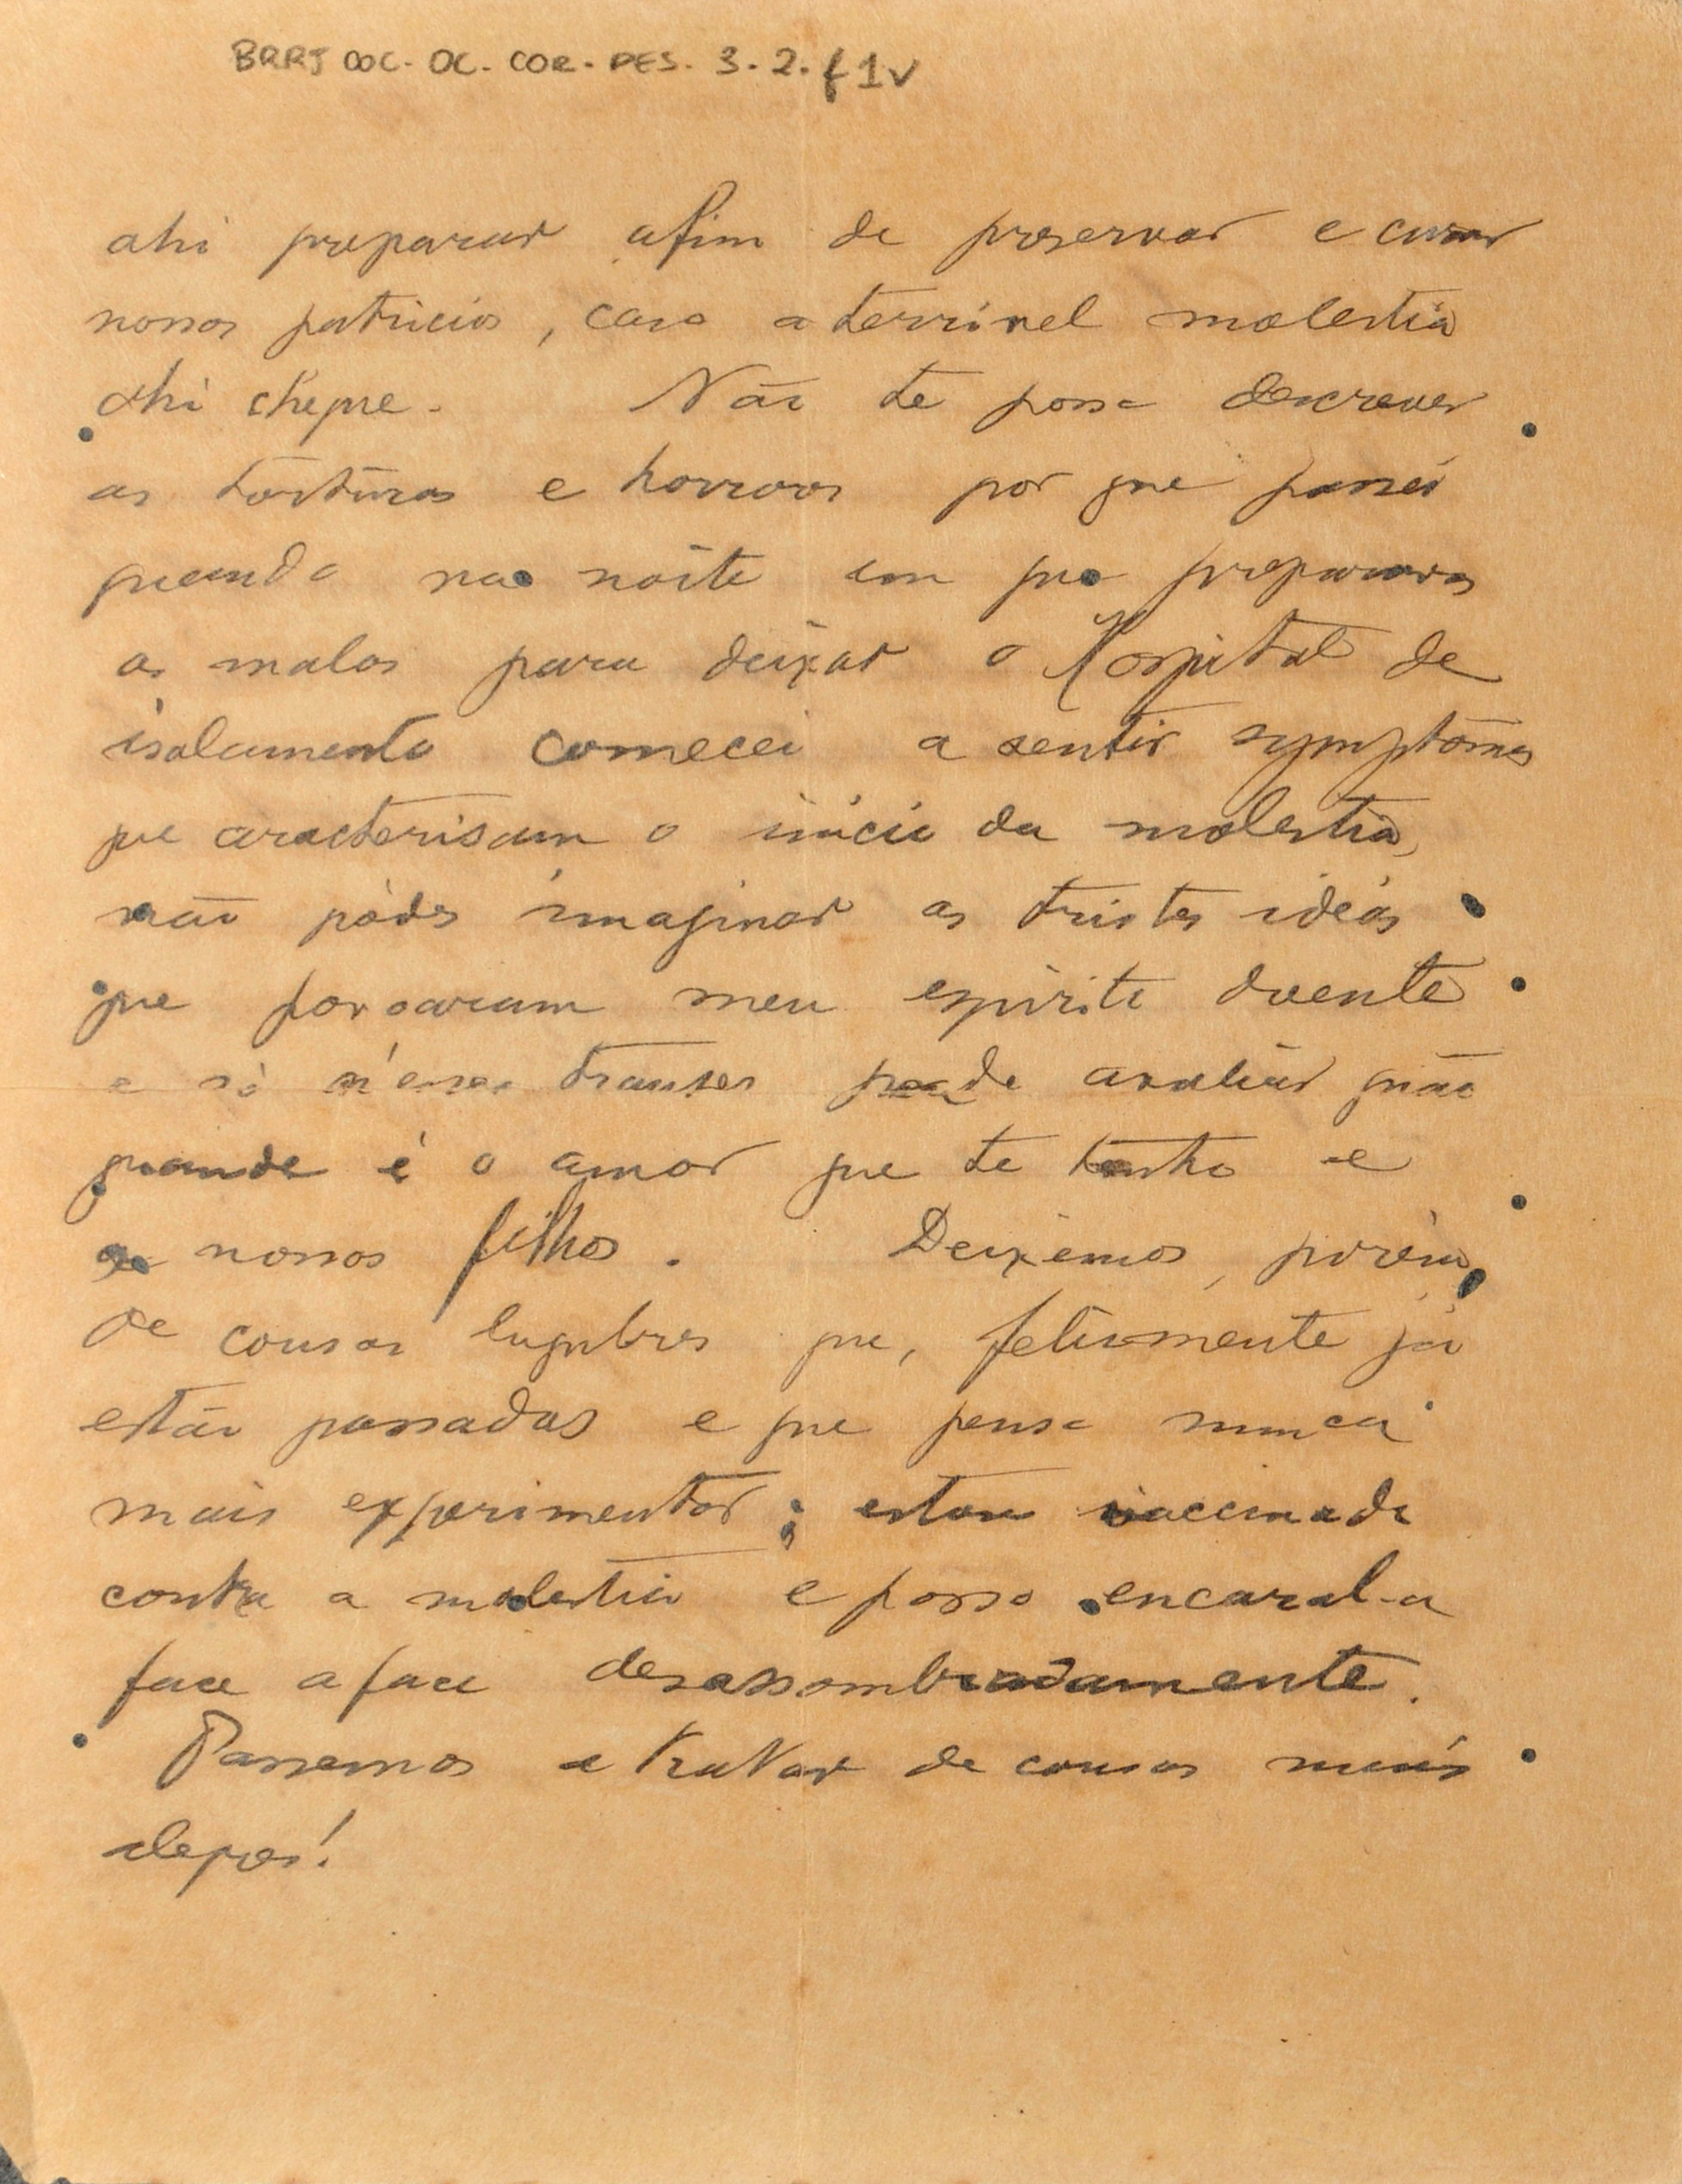 BRRJ COC. OC. COR. PES. 3. 2. f 1v
ahi preparar afim de preservar e curar
nossos patricios, caso a terrivel molestia
ahi chegue. Não te posso descrever
as torturas e horrores por que passei
quando na noite em que preparava
as malas para deixar o Hospital de
isolamento comecei a sentir symptomas
que caracterisam o inicio da molestia,
não pódes imaginar as tristes idéas
que povoaram meu espirito doente
e só n'esses transes pude avaliar quão
grande é o amor que te tenho e
a nossos filhos. Deixemos, porém,
de cousas lugubres que, felizmente já
estão passadas e que penso nunca
mais experimentar; estou vaccinado
contra a molestia e posso encaral-a
face a face desassombradamente.
Passemos a tratar de cousas mais
alegres!